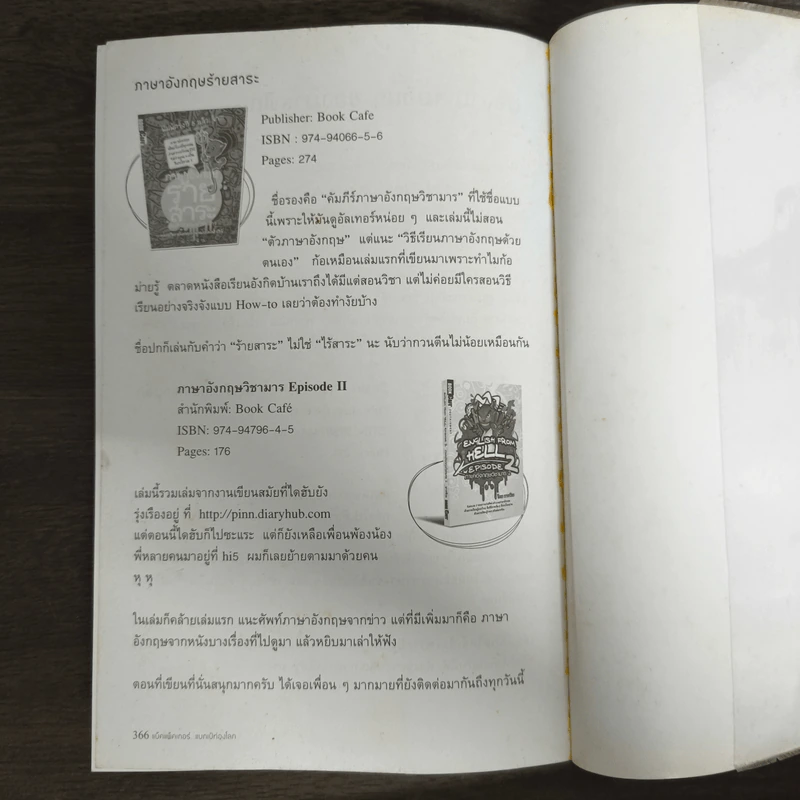 ภาษาอังกฤษร้ายสาระ
Publisher: Book Cafe
ISBN : 974-94066-5-6
Pages: 274
ร้าย
สาระ
ชื่อรองคือ “คัมภีร์ภาษาอังกฤษวิชามาร” ที่ใช้ชื่อแบบ
นี้เพราะให้มันดูอัลเทอร์หน่อย ๆ และเล่มนี้ไม่สอน
“ตัวภาษาอังกฤษ” แต่แนะ “วิธีเรียนภาษาอังกฤษด้วย
ตนเอง” ก้อเหมือนเล่มแรกที่เขียนมาเพราะทำไมก้อ
ม่ายรู้ ตลาดหนังสือเรียนอังกิดบ้านเราถึงได้มีแต่สอนวิชา แต่ไม่ค่อยมีใครสอนวิธี
เรียนอย่างจริงจังแบบ How-to เลยว่าต้องทำงัยบ้าง
ชื่อปกก็เล่นกับคำว่า “ร้ายสาระ” ไม่ใช่ “ไร้สาระ” นะ นับว่ากวนตีนไม่น้อยเหมือนกัน
ภาษาอังกฤษวิชามาร Episode II
สำนักพิมพ์: Book Café
ISBN: 974-94796-4-5
Pages: 176
ENGLISH FROM
HELL 2
EPISODE
เล่มนี้รวมเล่มจากงานเขียนสมัยที่ไดฮับยัง
รุ่งเรืองอยู่ ที่ http://pinn.diaryhub.com
แต่ตอนนี้ไดฮับก็ไปซะแระ แต่ก็ยังเหลือเพื่อนพ้องน้อง
พี่หลายคนมาอยู่ที่ hi5 ผมก็เลยย้ายตามมาด้วยคน
หุ หุ
ในเล่มก็คล้ายเล่มแรก แนะศัพท์ภาษาอังกฤษจากข่าว แต่ที่มีเพิ่มมาก็คือ ภาษา
อังกฤษจากหนังบางเรื่องที่ไปดูมา แล้วหยิบมาเล่าให้ฟัง
ตอนที่เขียนที่นั่นสนุกมากครับ ได้เจอเพื่อน ๆ มากมายที่ยังติดต่อมากันถึงทุกวันนี้
366 แบ็คแพ็คเกอร์ แบกเป้ท่องโลก